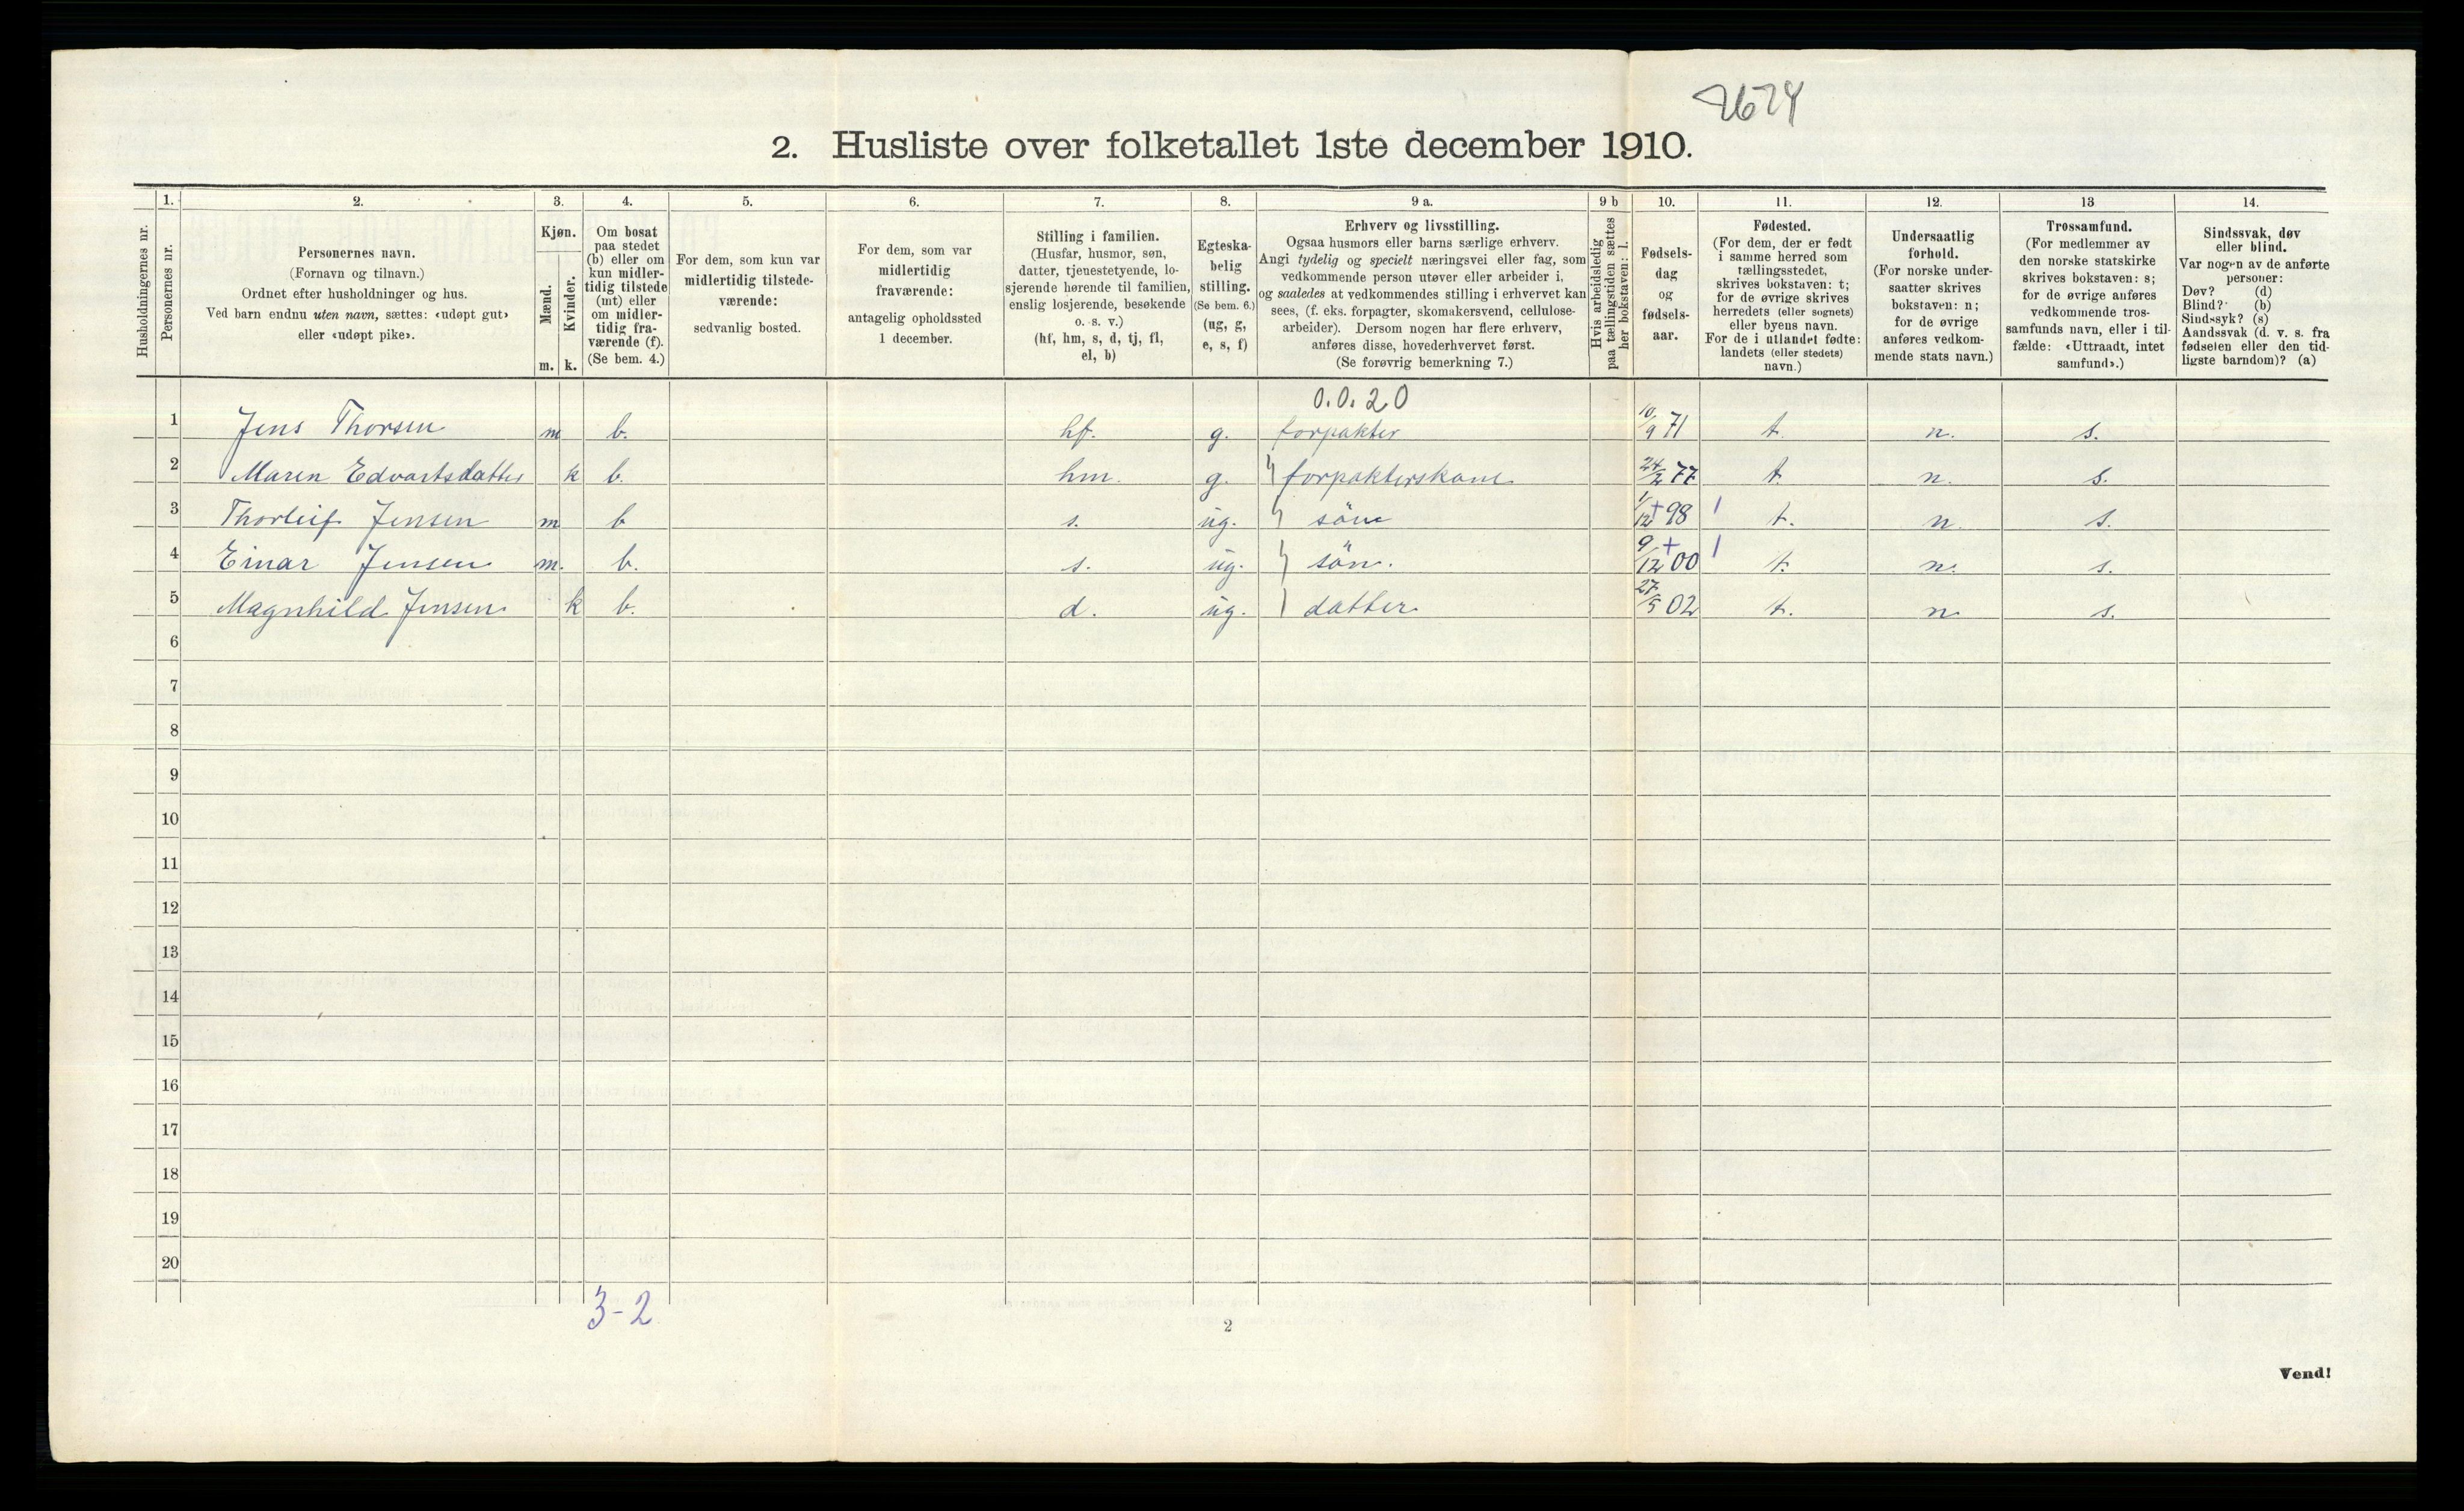 2674
2. Husliste over folketallet 1ste december 1910.
Husholdningernes nr.
1.
Personernes nr.
2.
Personernes navn.
(Fornavn og tilnavn.)
Ordnet efter husholdninger og hus.
Ved barn endnu uten navn, sættes: «udøpt gut»
eller «udøpt pike».
3.
Kjøn.
Mænd.
Kvinder.
m. k.
4.
Om bosat
paa stedet
(b) eller om
kun midler-
tidig tilstede
(mt) eller
om midler-
tidig fra-
værende (f).
(Se bem. 4.)
5.
For dem, som kun var
midlertidig tilstede-
værende:
sedvanlig bosted.
6.
For dem, som var
midlertidig
fraværende:
antagelig opholdssted
1 december.
7.
Stilling i familien.
(Husfar, husmor, søn,
datter, tjenestetyende, lo-
sjerende hørende til familien,
enslig losjerende, besøkende
o. s. v.)
(hf, hm, s, d, tj, fl,
el, b)
8.
Egteska-
belig
stilling.
(Se bem. 6.)
(ug, g,
e, s, f)
9 a.
Erhverv og livsstilling.
Ogsaa husmors eller barns særlige erhverv.
Angi tydelig og specielt næringsvei eller fag, som
vedkommende person utøver eller arbeider i,
og saaledes at vedkommendes stilling i erhvervet kan
sees, (f. eks. forpagter, skomakersvend, cellulose-
arbeider). Dersom nogen har flere erhverv,
anføres disse, hovederhvervet først.
(Se forøvrig bemerkning 7.)
9 b
Hvis arbeidsledig
paa tællingstiden sættes
her bokstaven: l.
10.
Fødsels-
dag
og
fødsels-
aar.
11.
Fødested.
(For dem, der er født
i samme herred som
tællingsstedet,
skrives bokstaven: t;
for de øvrige skrives
herredets (eller sognets)
eller byens navn.
For de i utlandet fødte:
landets (eller stedets)
navn.)
12.
Undersaatlig
forhold.
(For norske under-
saatter skrives
bokstaven: n;
for de øvrige
anføres vedkom-
mende stats navn.)
13
Trossamfund.
(For medlemmer av
den norske statskirke
skrives bokstaven: s;
for de øvrige anføres
vedkommende tros-
samfunds navn, eller i til-
fælde: «Uttraadt, intet
samfund».)
14.
Sindssvak, døv
eller blind.
Var nogen av de anførte
personer:
Døv? (d)
Blind? (b)
Sindssyk? (s)
Aandssvak (d. v. s. fra
fødselen eller den tid-
ligste barndom)? (a)
0.0.20
1 Jens Thorsen m b. hf. g. forpakter 10/9 71 t. n. s.
2 Maren Edvartsdatter k b. hm. g. forpakterskone 24/2 77 t. n. s.
3 Thorleif Jensen m b s. ug. sön 1/12 + 98 1 t. n. s.
4 Einar Jensen m. b. s. ug. sön. 9/12 + 00 1 t. n. s.
5 Magnhild Jensen k b. d. ug. datter 27/5 02 t. n. s.
6
7
8
9
10
11
12
13
14
15
16
17
18
19
20
3-2
2
Vend!